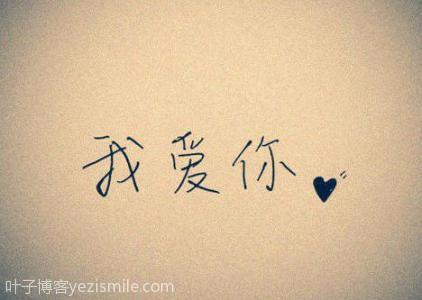 我爱你
叶子博客yezismile.com